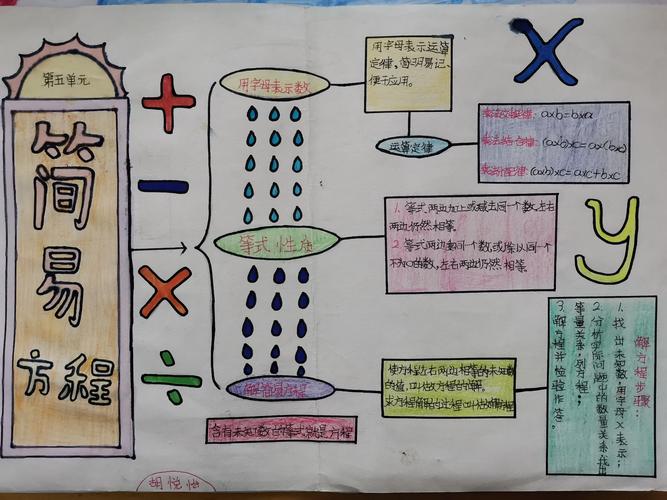 第五单元
简易
方程
+
-
×
÷
用字母表示数
用字母表示运算
定律，简明易记、
便于应用。
运算定律
乘法交换律: a×b=b×a
乘法结合律: (a×b)×c=a×(b×c)
乘法分配律: (a+b)×c=a×c+b×c
X
y
等式性质
1. 等式两边加上或减去同一个数，左右
两边仍然相等。
2. 等式两边乘同一个数，或除以同一个
不为0的数，左右两边仍然相等。
解简易方程
使方程左右两边相等的未知数
的值，叫做方程的解。
求方程解的过程叫做解方程
含有未知数的等式就是方程
解方程步骤：
1. 找出未知数，用字母X表示；
2. 分析实际问题中的数量关系，找出
等量关系，列方程；
3. 解方程并检验作答。
胡悦怡